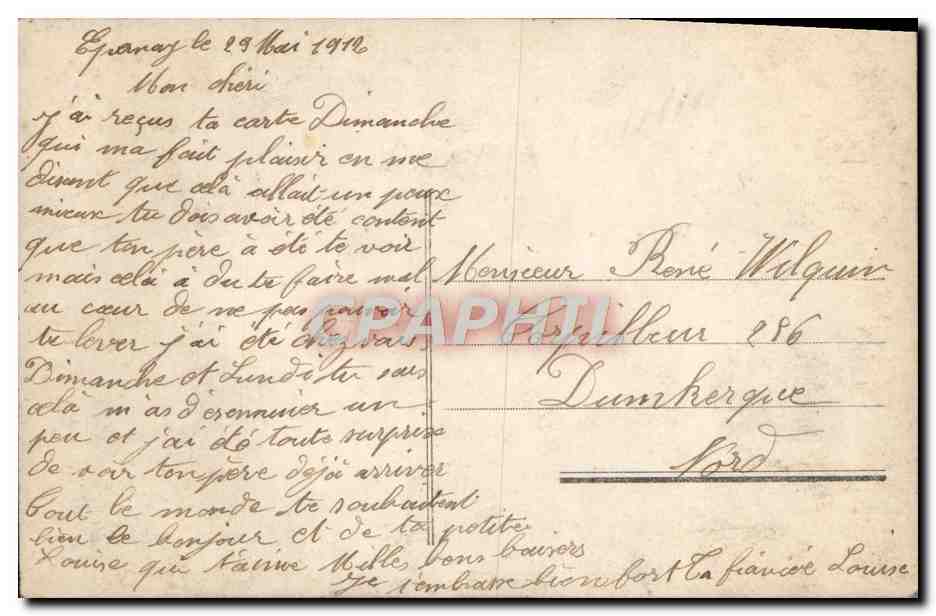 Epernay le 29 Mai 1912
Mon chéri
j'ai reçus ta carte Dimanche
qui ma fait plaisir en me
disant que celà allait un peux
mieux tu dois avoir été content
que ton père à été te voir
mais celà à du te faire mal
au cœur de ne pas pouvoir
te lever j'ai été chez vous
Dimanche et Lundi tu sais
celà m'as désennuier un
peu et j'ai été toute surprise
de voir ton père déjà arriver
tout le monde te souhaitent
bien le bonjour et de ta petite
Louise qui t'aime Milles bons baisers
Je t'embrasse bien fort Ta fiancée Louise
Monsieur René Wilquin
286
Dunkerque
Nord
CPAPHIL